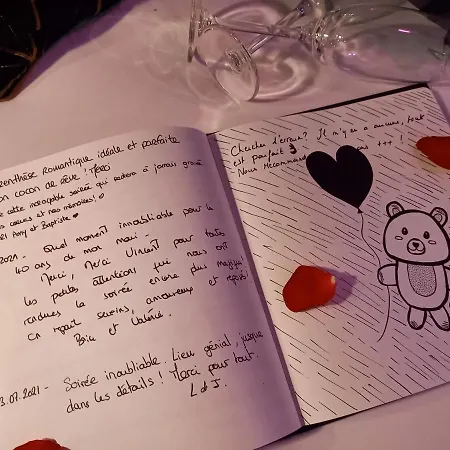 parenthèse Romantique idéale et parfaite
cocon de rêve ! Merci
cette incroyable soirée qui restera à jamais gravée
cœurs et nos mémoires !
Amy et Baptiste ♥
2021 - Quel moment inoubliable pour les
40 ans de mon mari -
Merci, Merci Vincent pour toutes
les petites attentions qui nous ont
rendues la soirée encore plus magique
En repart sereins, amoureux et reposés
Brice et Valérie.
3.07.2021 - Soirée inoubliable. Lieu génial, jusque
dans les détails ! Merci pour tout.
L et J.
Chercher l'erreur ? Il n'y en a aucune, tout
est parfait
Nous Recommandons +++ !